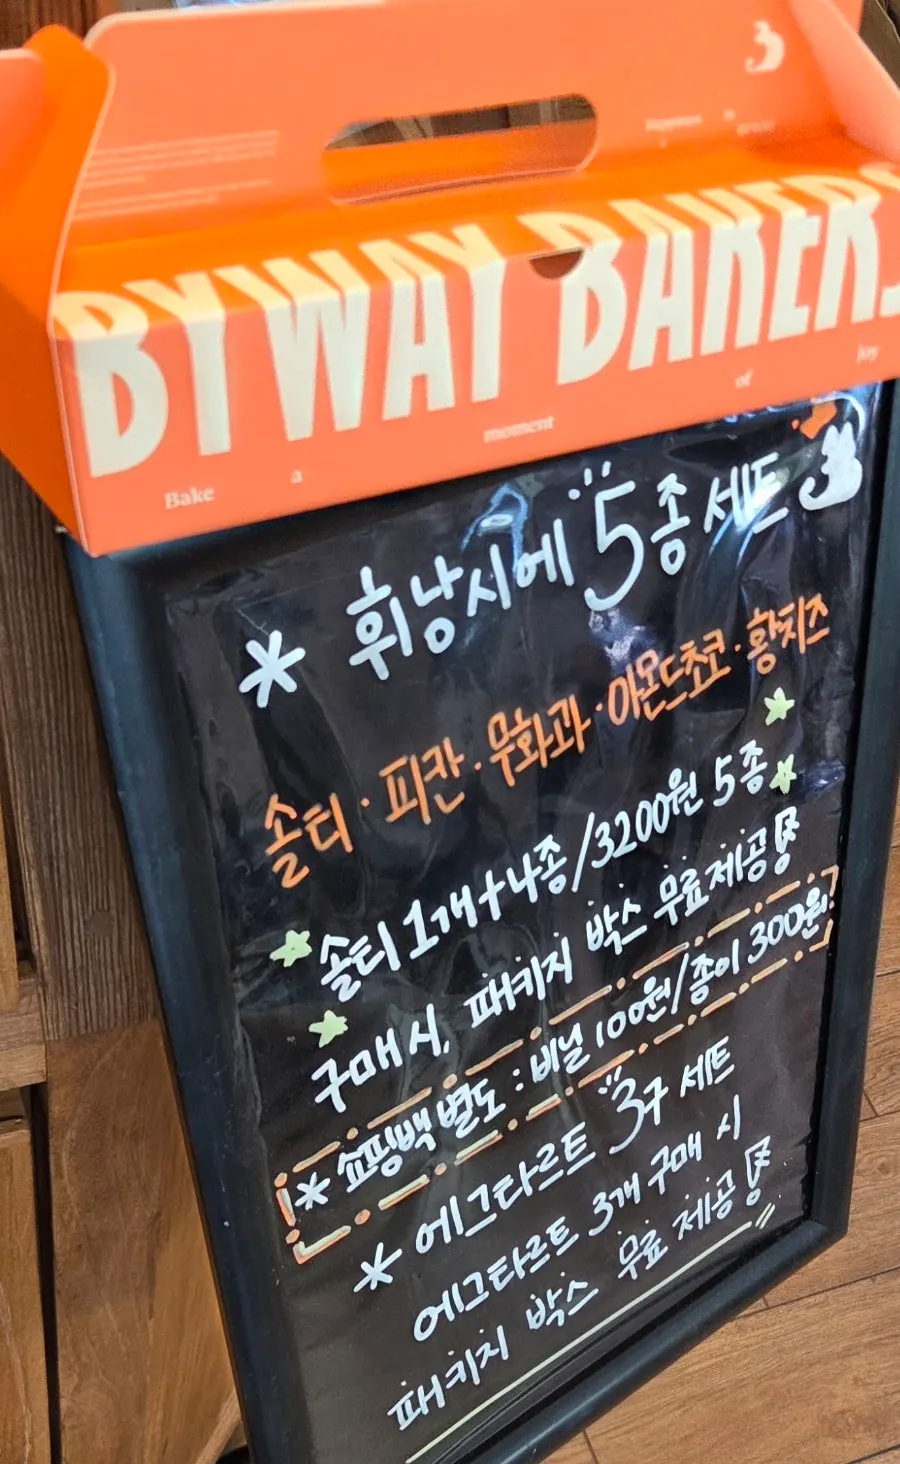 Happiness
BYWAY BAKERS
Bake a moment of joy
* 휘낭시에 5종 세트
솔티 · 피칸 · 무화과 · 아몬드초코 · 황치즈
솔티 1개+4종/3200원 5종
구매 시, 패키지 박스 무료제공!
* 쇼핑백 별도 : 비닐 100원/종이 300원
* 에그타르트 3구 세트
에그타르트 3개 구매 시
패키지 박스 무료 제공!